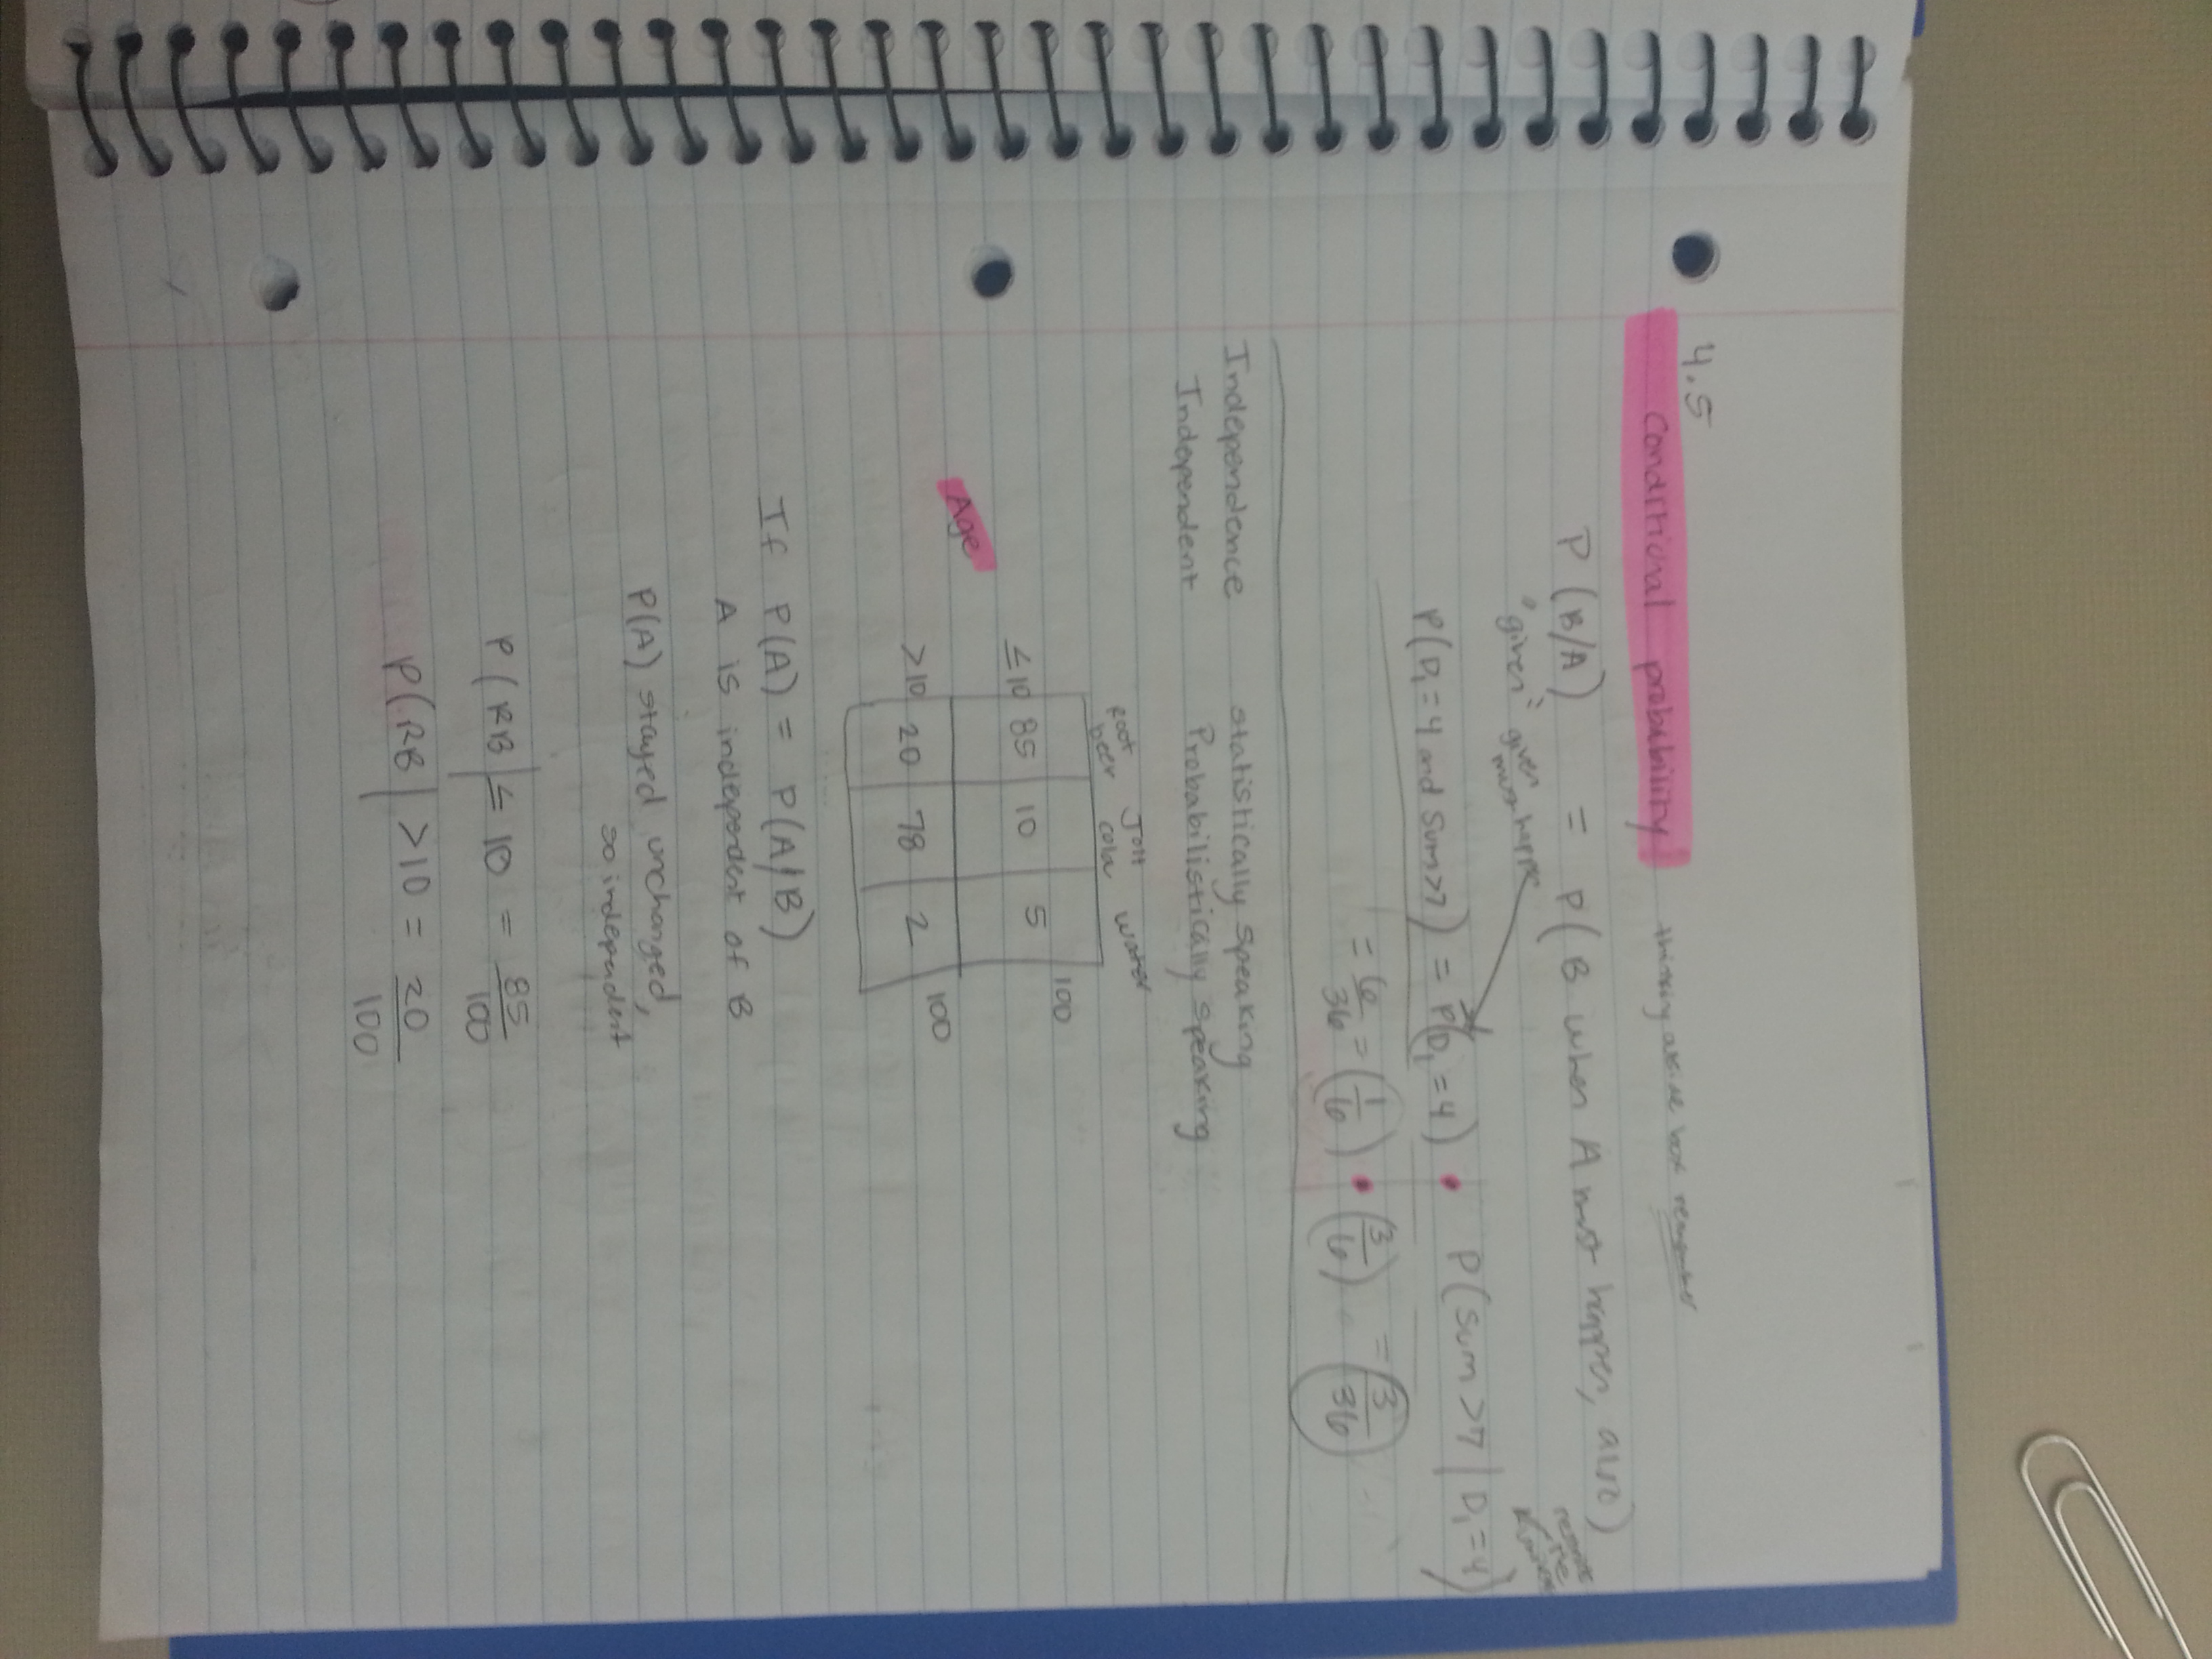 4.5
Conditional probability thinking abt box
P(B/A) = P(B when A must happen, also)
"given" given must happen
P(D₁=4 and Sum>7) = P(D₁=4) • P(Sum>7 | D₁=4)
= 6/36 = (1/6) • (3/6) = 3/36
Independence statistically speaking
Independent Probabilistically speaking
root beer Jolt cola water
≤10 85 10 5 100
Age
>10 20 78 2 100
If P(A) = P(A|B)
A is independent of B
P(A) stayed unchanged,
so independent
P(RB | ≤ 10 = 85/100
P(RB | >10 = 20/100